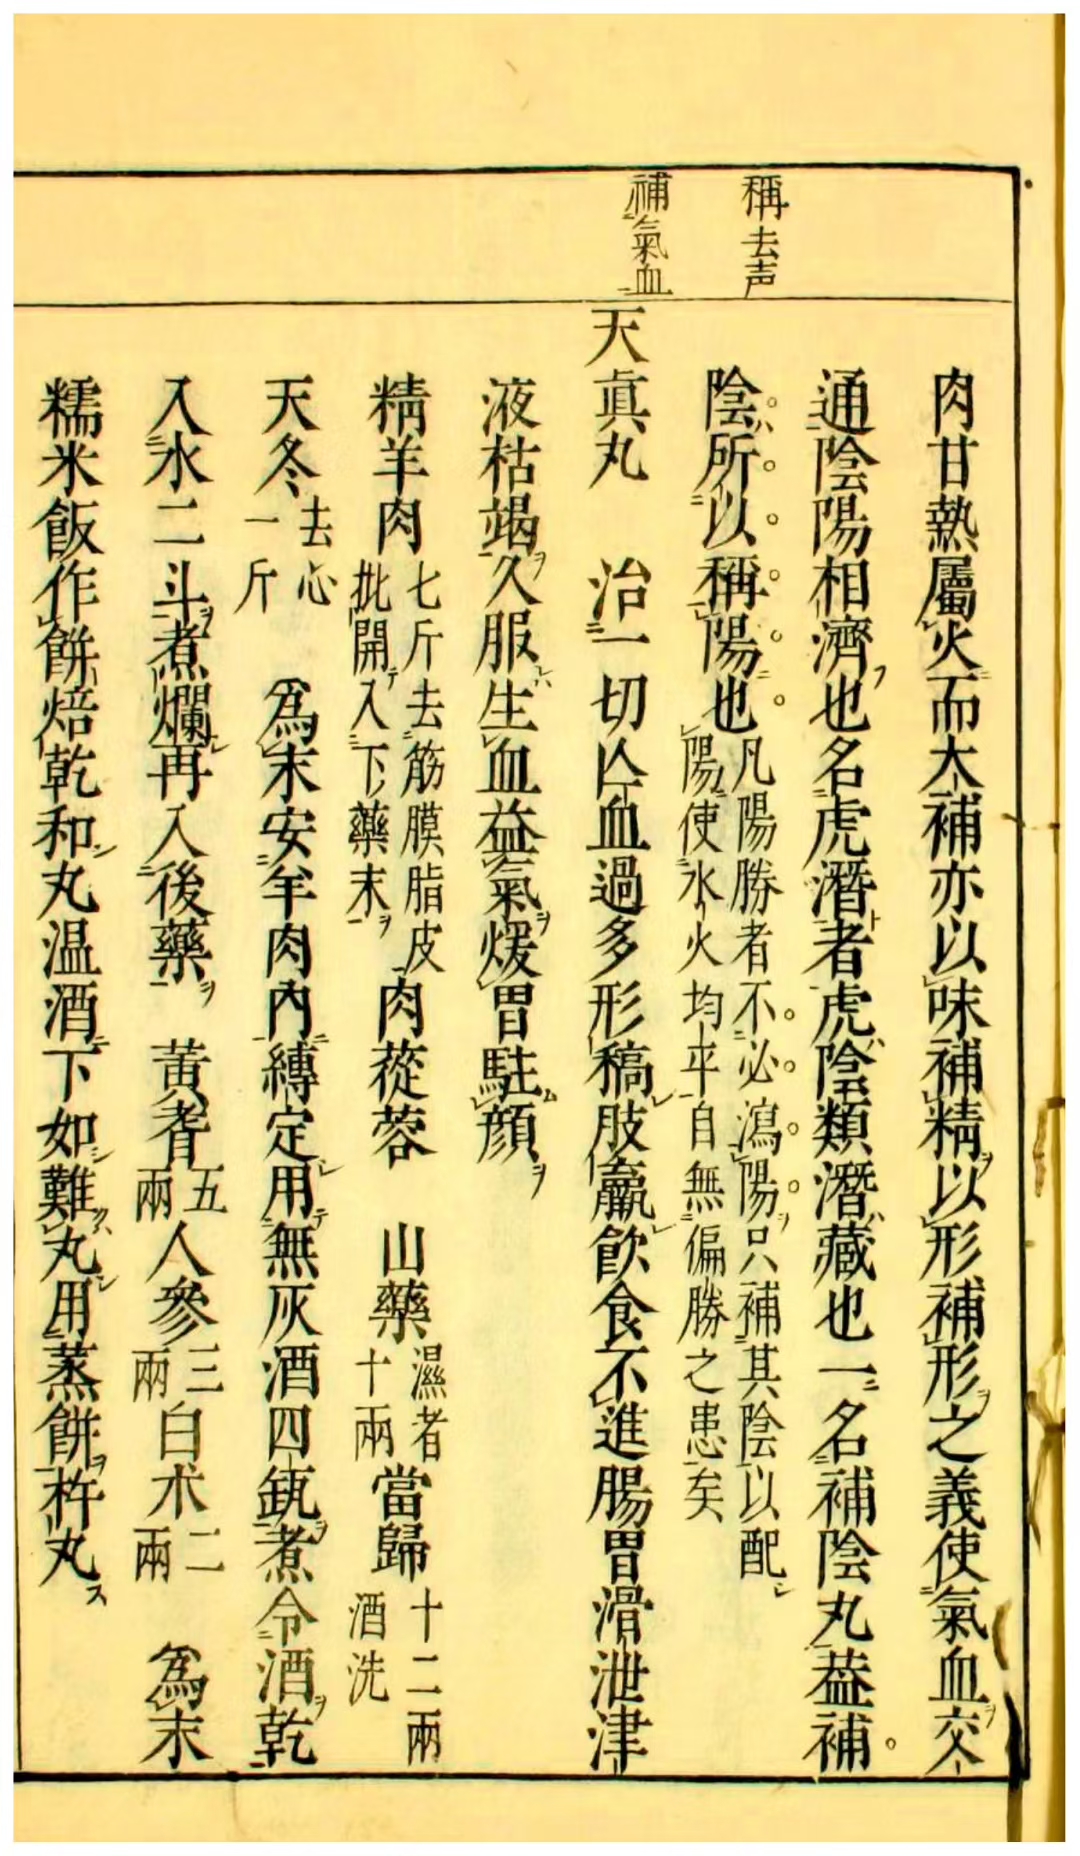 稱去声
補氣血
肉甘熱屬火而大補亦以味補精以形補形之義使氣血交
通陰陽相濟也名虎潛者虎陰類潛藏也一名補陰丸葢補
陰所以稱陽也凡陽勝者不必瀉陽只補其陰以配陽使水火均平自無偏勝之患矣
天真丸 治一切亾血過多形稿肢羸飲食不進腸胃滑泄津
液枯竭久服生血益氣煖胃駐顔
精羊肉七斤去筋膜脂皮批開入下藥末 肉蓯蓉 山藥濕者十兩當歸十二兩酒洗
天冬去心一斤 為末安羊肉內縛定用無灰酒四缻煮令酒乾
入水二斗煮爛再入後藥 黃耆五兩人參三兩白朮二兩 為末
糯米飯作餅焙乾和丸温酒下如難丸用蒸餅杵丸